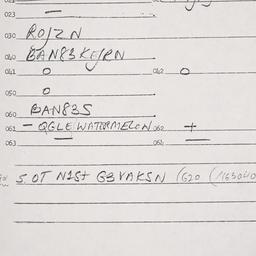 023 —
030 ROIZN
040 BAN83KEJRN
041 0 042 0
050 0
060 BAN83S
061 - QGLE WATERMELON 062 +
063 064
5. OT N1S7 G3 VAKSN (620 (